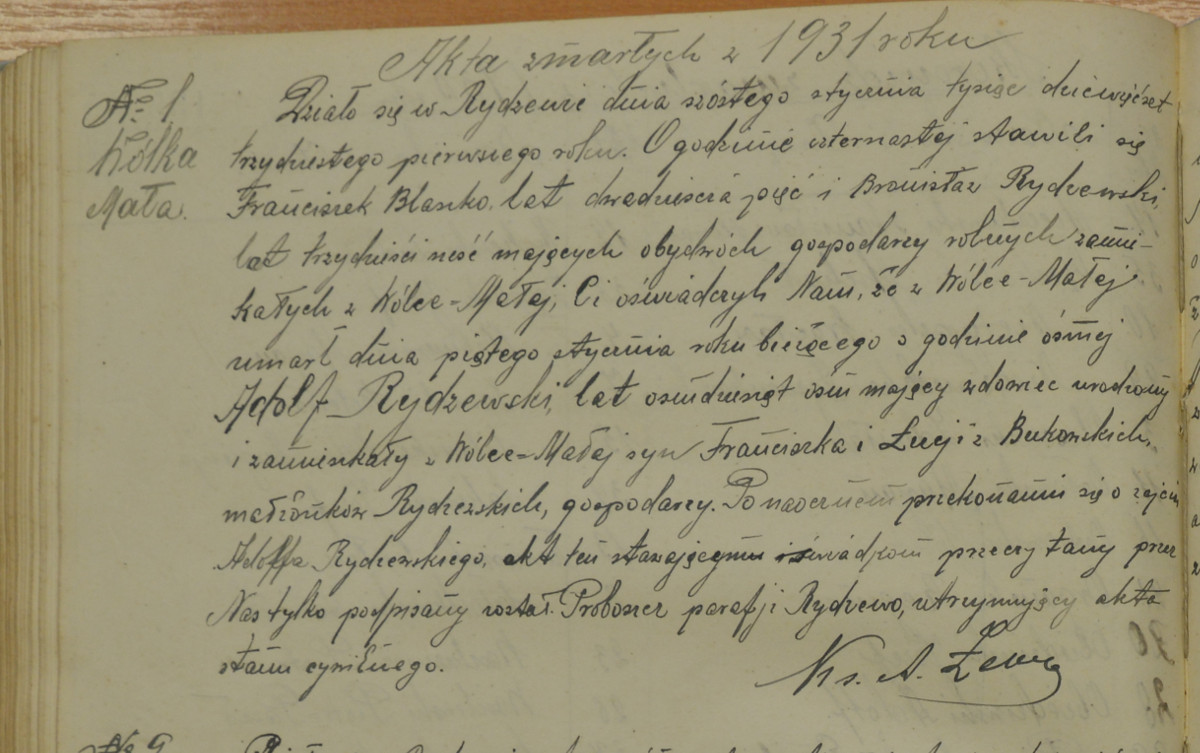 Akta zmarłych z 1931 roku
№ 1
Wólka
Mała.
Działo się w Rydzewie dnia szóstego stycznia tysiąc dziewięćset
trzydziestego pierwszego roku. O godzinie czternastej stawili się
Franciszek Blaszko, lat dwadzieścia pięć i Bronisław Rydzewski,
lat trzydzieści sześć mających obydwóch gospodarzy rolnych zamie-
kałych z Wólce-Małej, Ci oświadczyli Nam, że z Wólce-Małej
umarł dnia piątego stycznia roku bieżącego o godzinie ósmej
Adolf Rydzewski, lat osiudziesiąt osiu mający wdowiec urodzony
i zamieszkały z Wólce-Małej syn Franciszka i Łucji z Bukowskich,
małżonków Rydzewskich, gospodarzy. Po naocznem przekonaniu się o zejściu
Adolfa Rydzewskiego, akt ten stawającymu świadkom przeczytany przez
Nas tylko podpisany został. Proboszcz parafji Rydzewo, utrzymujący akta
stanu cywilnego.
Ks. A.
№ 2